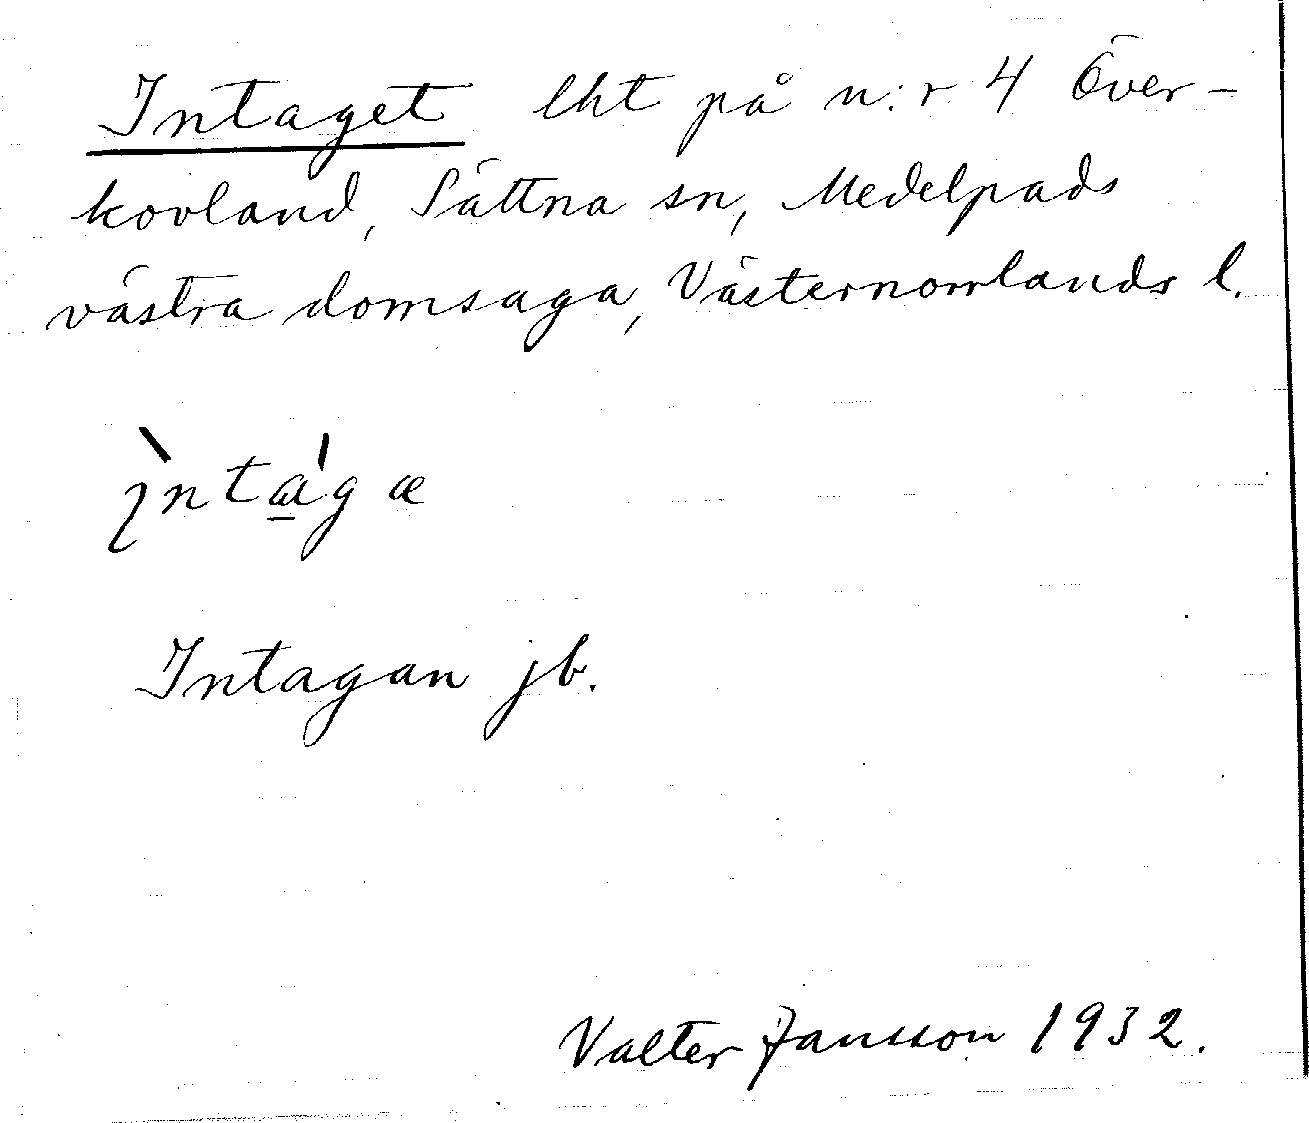 Intaget lht på n:r 4 Över-
kovland, Sättna sn, Medelpads
västra domsaga, Västernorrlands l.
ìnta̲'gæ
Intagan jb.
Valter Jansson 1932.